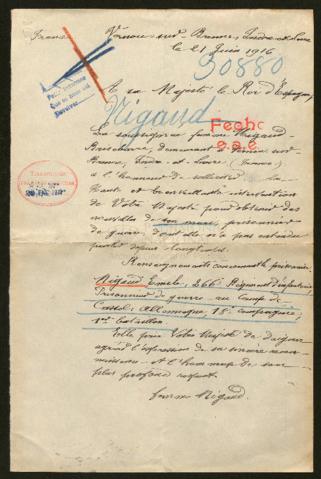 France Vernou-sur-Brenne, Indre-et-Loire
le 21 Juin 1916
30880
A sa Majesté le Roi d'Espagne,
Rigaud
Fecho
e.a.e
La soussignée femme Rigaud
demeurant à Vernou-sur-
Brenne, Indre et Loire (France)
a l'honneur de solliciter la
haute et bienveillante intervention
de Votre Majesté pour obtenir des
nouvelles de son mari, prisonnier
de guerre, dont elle n'a pas entendu
parler depuis longtemps.
Renseignements concernant le prisonnier:
Rigaud Emile, 266e Régiment d'infanterie,
Prisonnier de guerre au Camp de
Cassel, Allemagne, 18e compagnie,
1er bataillon
Votre Majesté de daigner
agréer l'expression de sa sincère recon-
naissance et l'hommage de son
plus profond respect.
femme Rigaud.